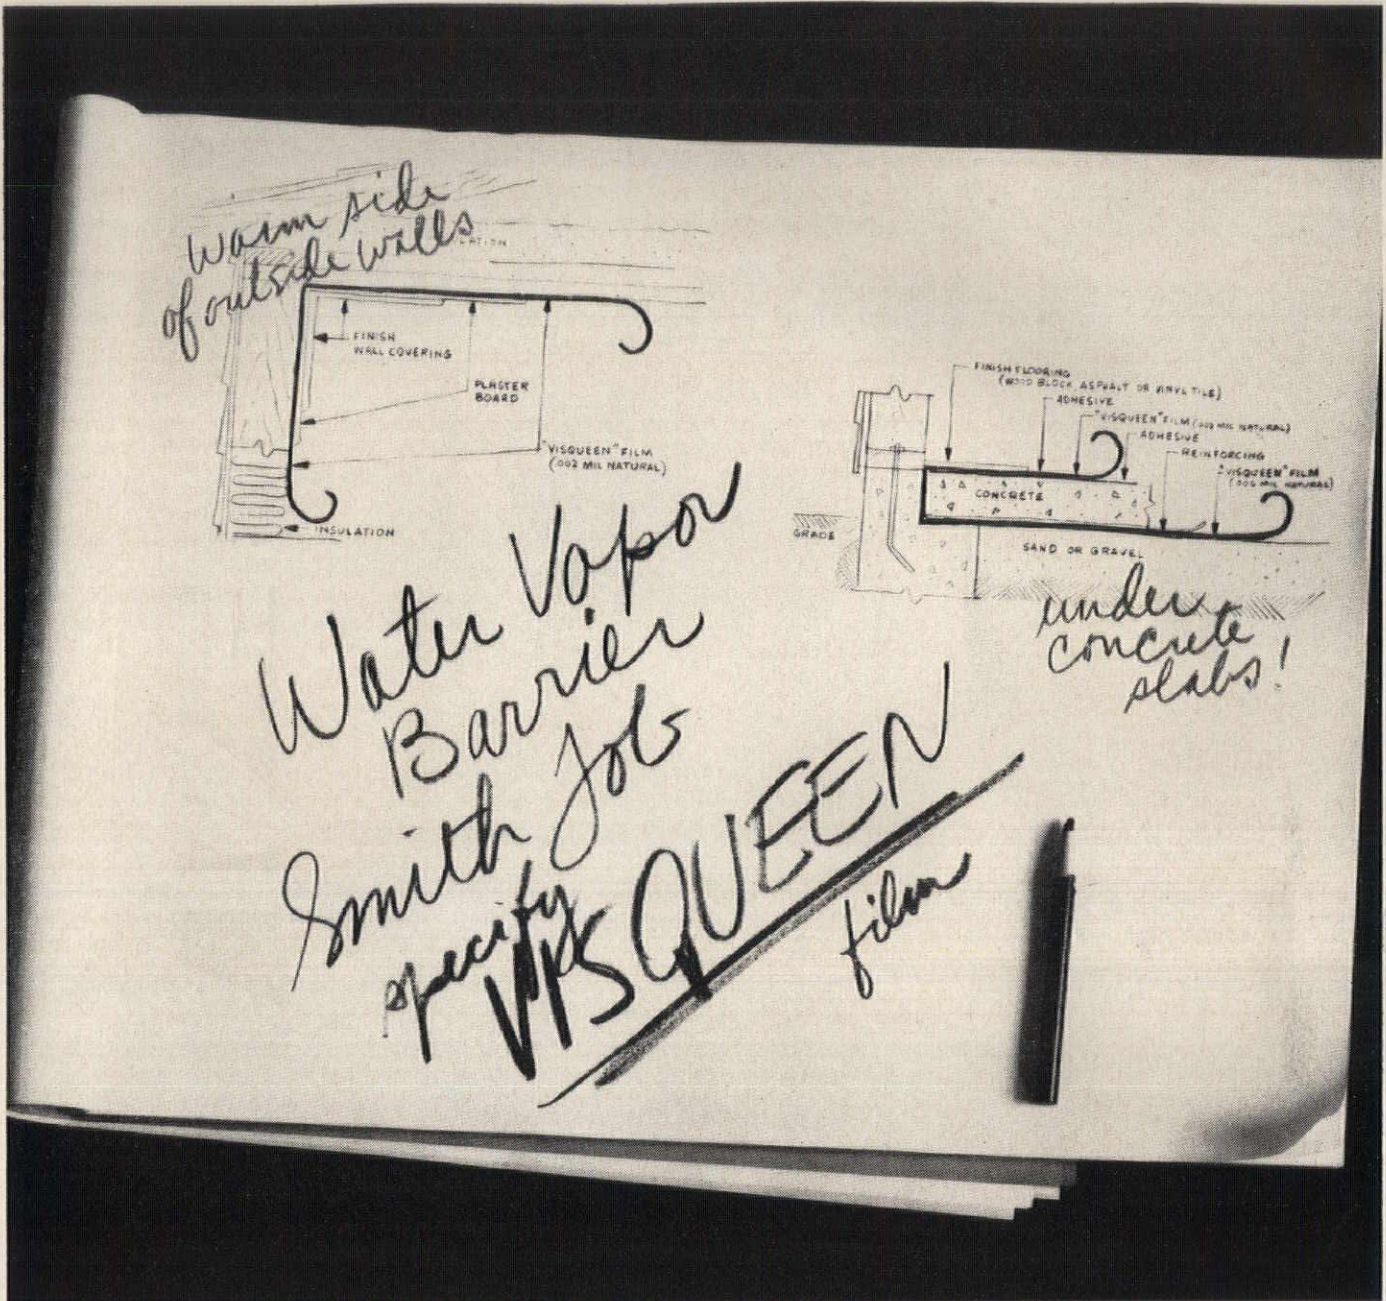 Warm side
of outside walls
FINISH
WALL COVERING
PLASTER
BOARD
"VISQUEEN" FILM
(.002 MIL NATURAL)
INSULATION
FINISH FLOORING
(WOOD BLOCK, ASPHALT OR VINYL TILE)
ADHESIVE
"VISQUEEN" FILM (.002 MIL NATURAL)
ADHESIVE
REINFORCING
"VISQUEEN" FILM
MIL NATURAL)
CONCRETE
GRADE
SAND OR GRAVEL
under
concrete
slabs!
Water Vapor
Barrier
Smith Job
specify
VISQUEEN
film